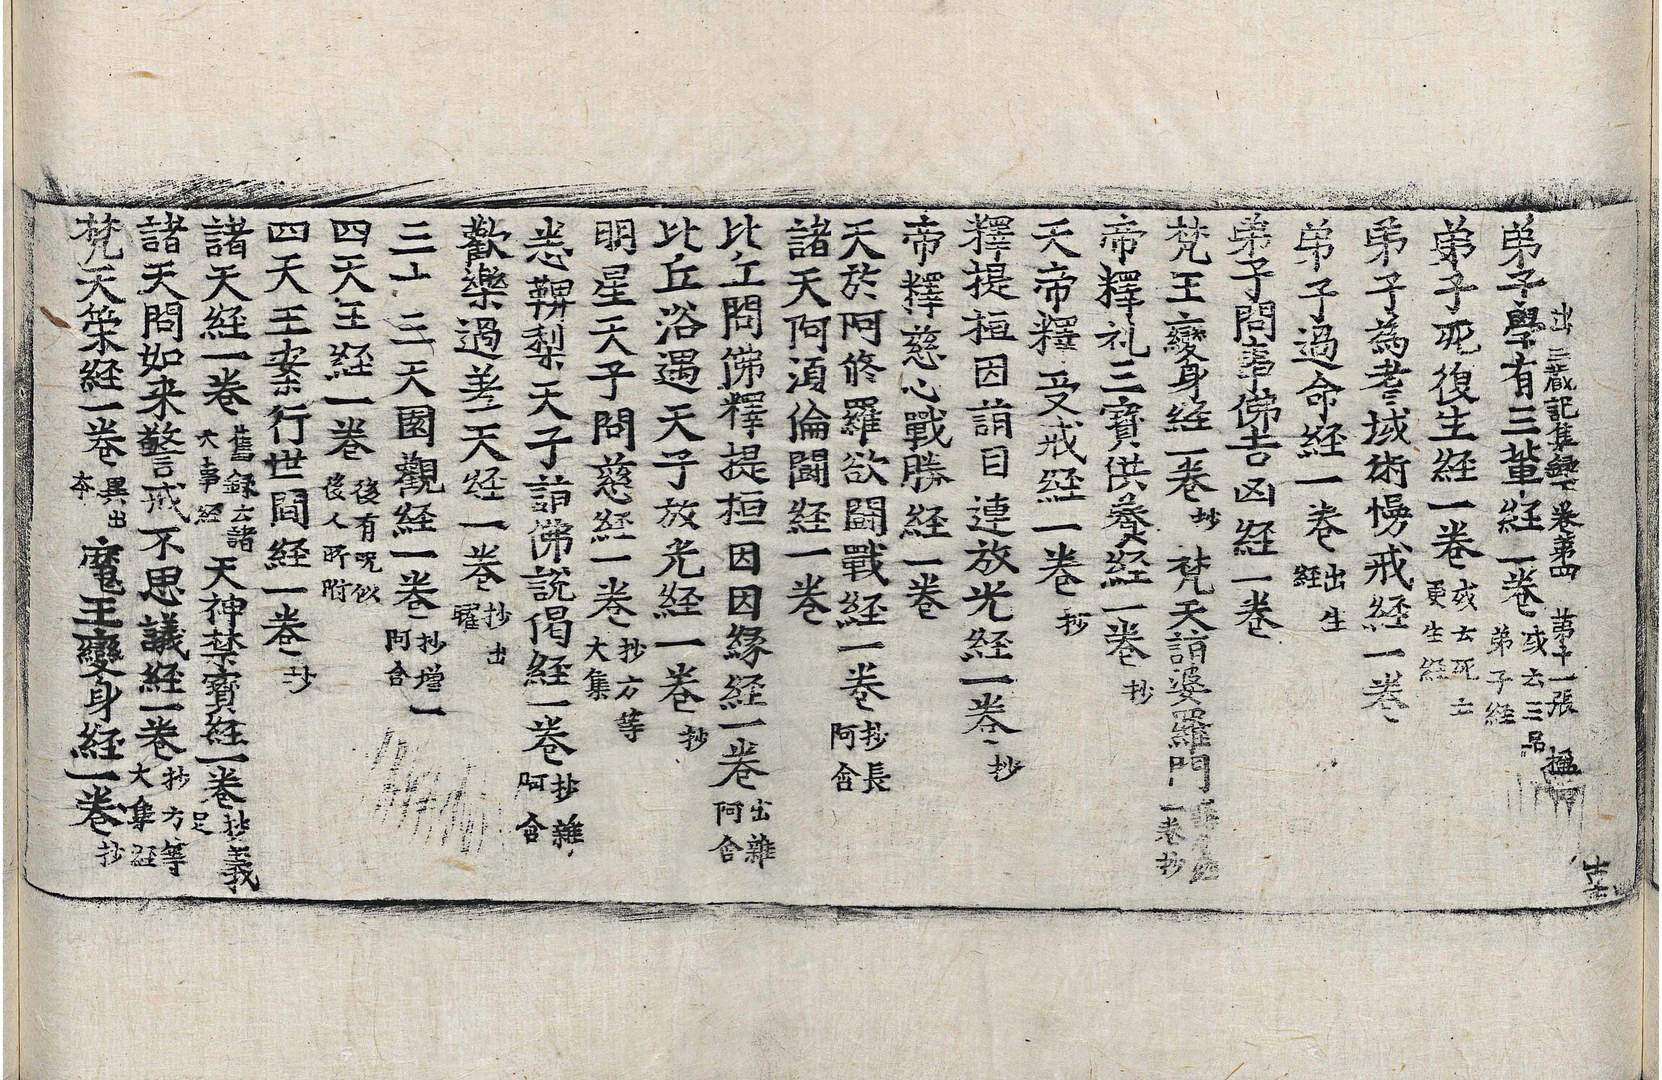 出三蔵記集録下卷苐四 苐十一張
弟子學有三軰経一卷 或云三品弟子経
弟子死復生経一卷 或云死亡更生経
弟子為耆域術慢戒経一卷
弟子過命経一卷 出生経
弟子問事佛吉凶経一卷
梵王變身経一卷 抄 梵天詣婆羅門 一卷抄
帝釋礼三寳供養経一卷 抄
天帝釋受戒経一卷 抄
釋提桓因詣目連放光経一卷 抄
帝釋慈心戰勝経一卷
天於阿修羅欲闘戰経一卷 抄長阿含
諸天阿湏倫闘経一卷
比丘問佛釋提桓因因緣経一卷 出雜阿含
比丘浴遇天子放光経一卷 抄
明星天子問慈経一卷 抄方等大集
悉鞞梨天子詣佛說偈経一卷 抄雜阿含
歡樂過差天経一卷 抄出曜
三十三天園觀経一卷 抄增一阿含
四天王経一卷 後有呪似後人所附
四天王案行世間経一卷 抄
諸天経一卷 舊録云諸天事経 天神禁寳経一卷 抄義足
諸天問如来警戒不思議経一卷 抄方等大集経
梵天策経一卷 異出本 魔王變身経一卷 抄